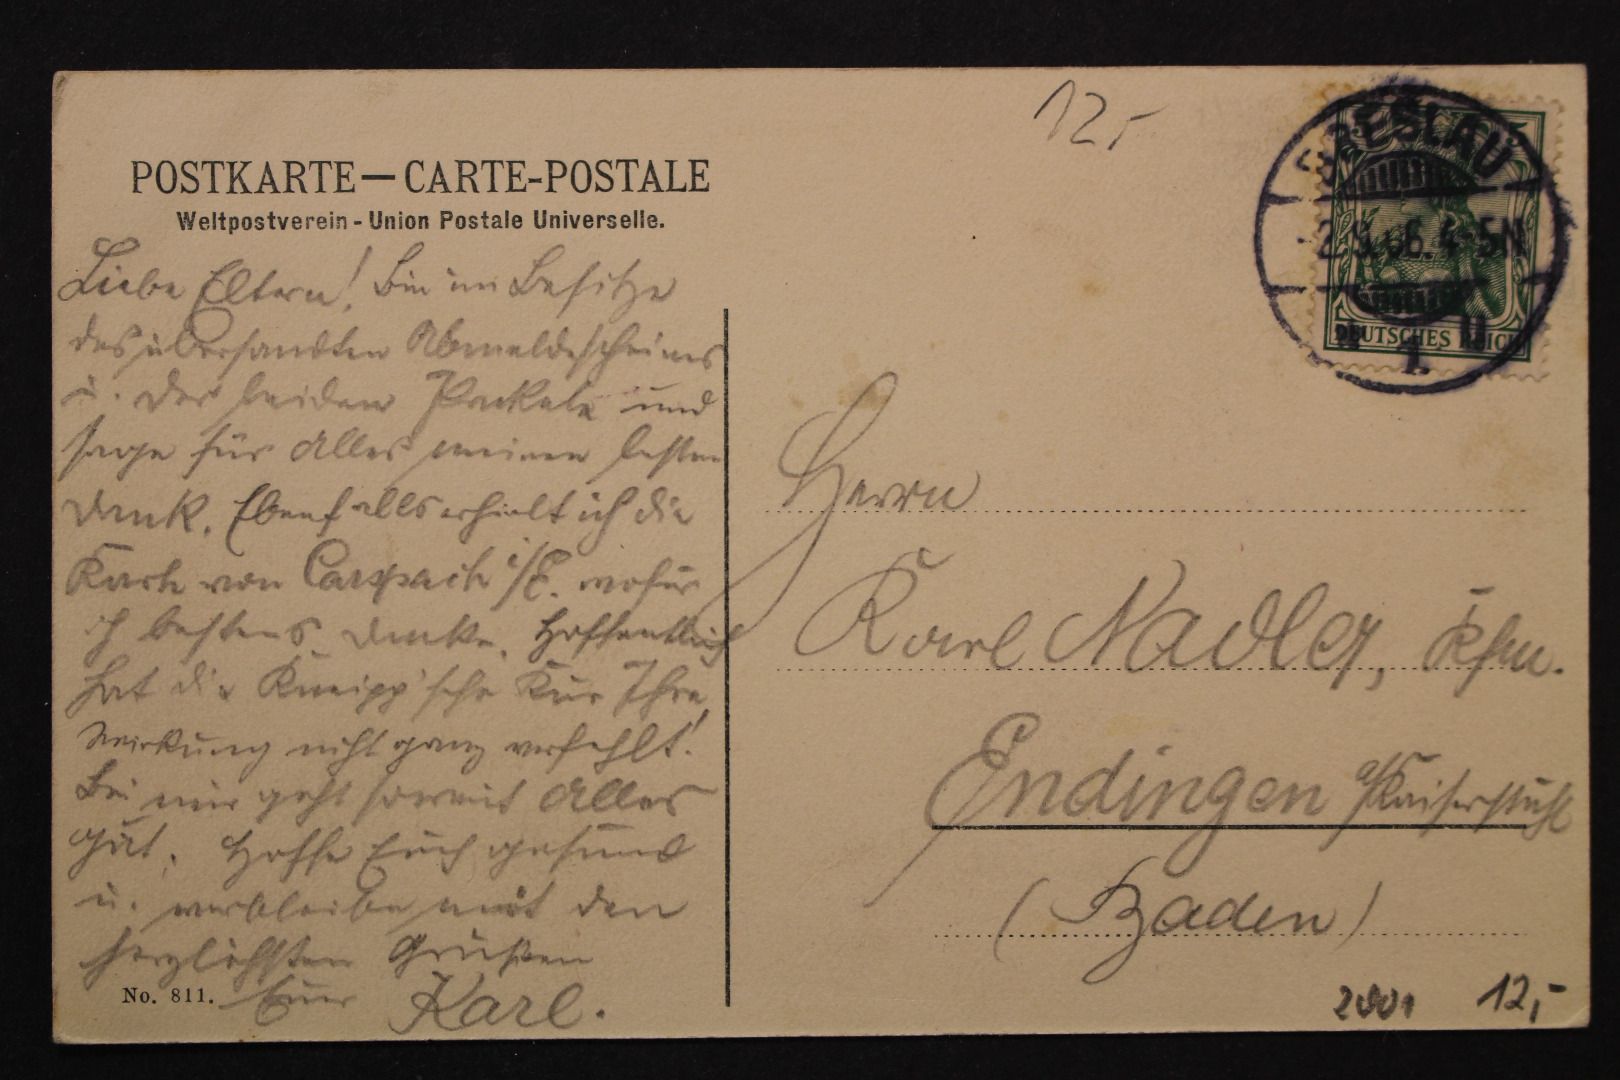 12,-
POSTKARTE — CARTE-POSTALE
Weltpostverein - Union Postale Universelle.
Liebe Eltern! Bin im Besitze
des übersandten Abmeldescheines
u. der beiden Pakete und
sage für Alles meinen besten
Dank. Ebenfalls erhielt ich die
Karte von Carspach i/E. wofür
ich bestens danke. Hoffentlich
hat die Kneipp'sche Kur Ihre
Wirkung nicht ganz verfehlt!
Bei mir geht soweit Alles
gut. Hoffe Euch gesund
u. verbleibe mit den
herzlichsten Grüßen
Euer Karl.
No. 811.
BRESLAU
2.9.06. 4-5N
1.
DEUTSCHES REICH
Herrn
Karl Nadler, Kfm.
Endingen a/Kaiserstuhl
(Baden)
12,-